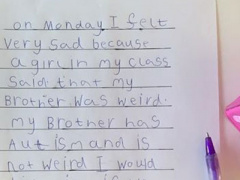 on Monday I felt
very sad because
a girl in my class
said that my
Brother was weird.
my Brother has
Autism and is
not weird I would